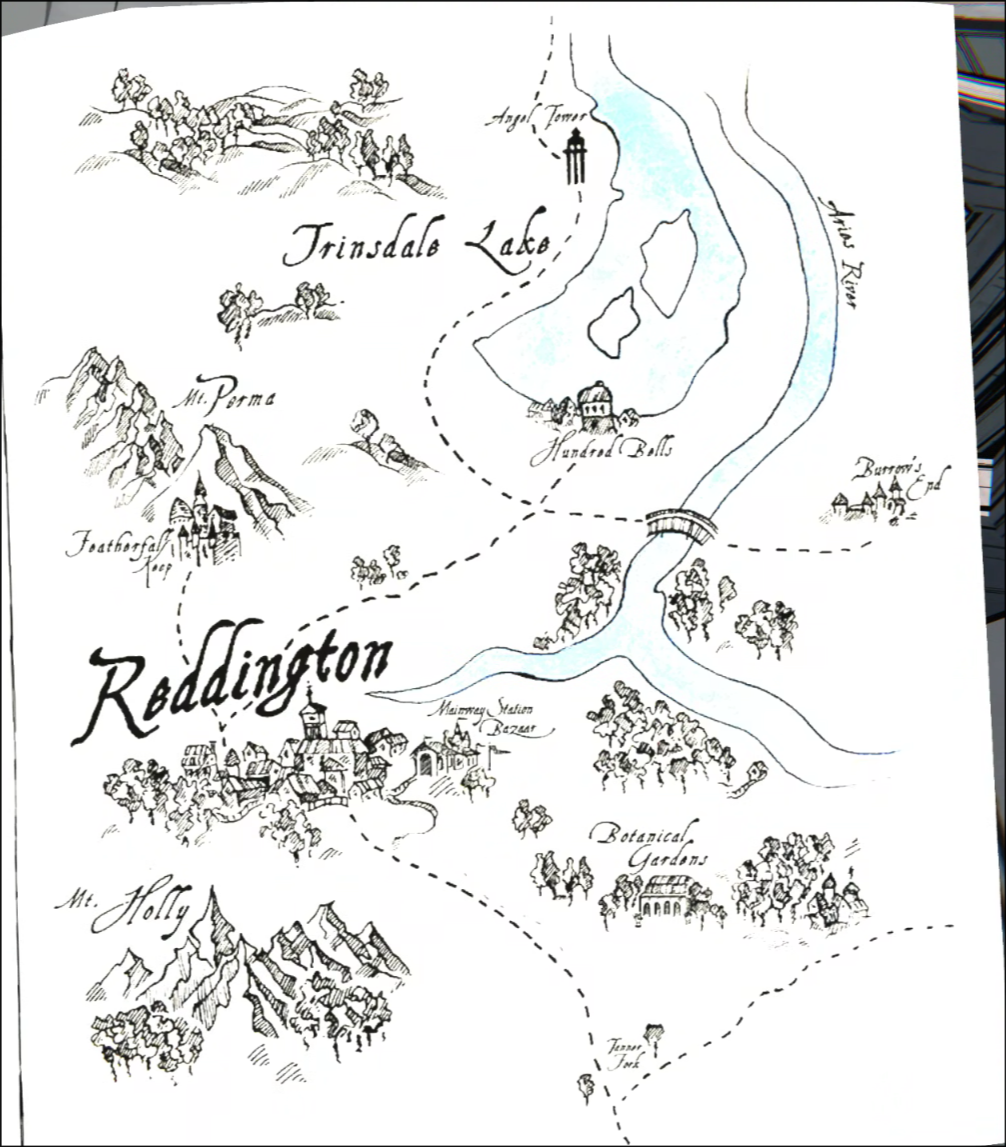 Angel Tower
Aries River
Trinsdale Lake
Mt. Perma
Hundred Bells
Burrow's
End
Featherfall
Keep
Reddington
Mainway Station
Bazaar
Botanical
Gardens
Mt. Holly
Tanner
Fork